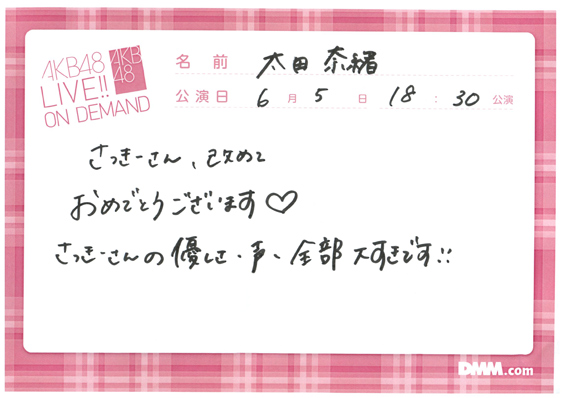 AKB48
LIVE!!
ON DEMAND
AKB
48
名前 太田奈緒
公演日 6月5日 18:30公演
さっきーさん、改めて
おめでとうございます♡
さっきーさんの優しさ・声、全部大すきです!!
DMM.com